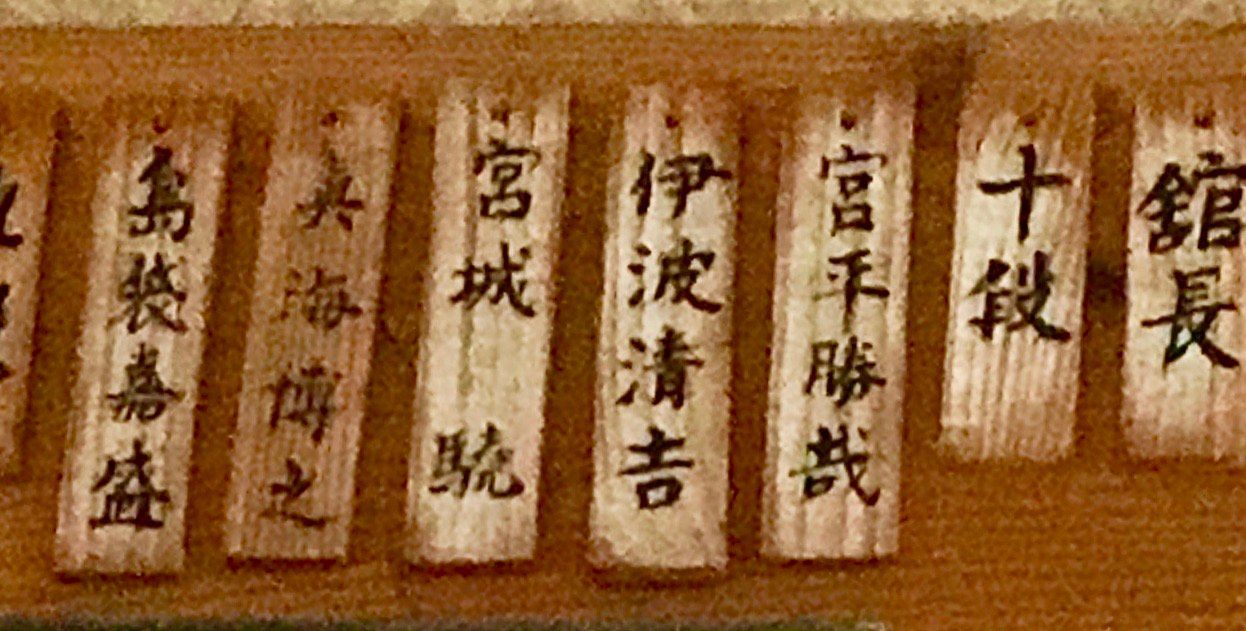 舘長
十段
宮平勝哉
伊波清吉
宮城 驍
兵海博之
島袋嘉盛